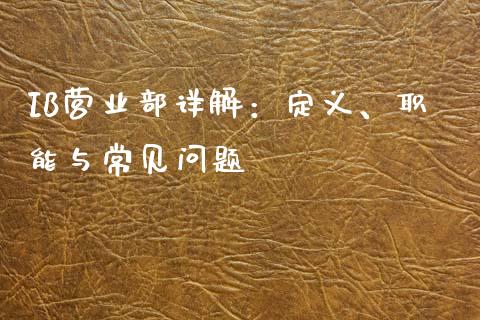 IB营业部详解：定义、职
能与常见问题